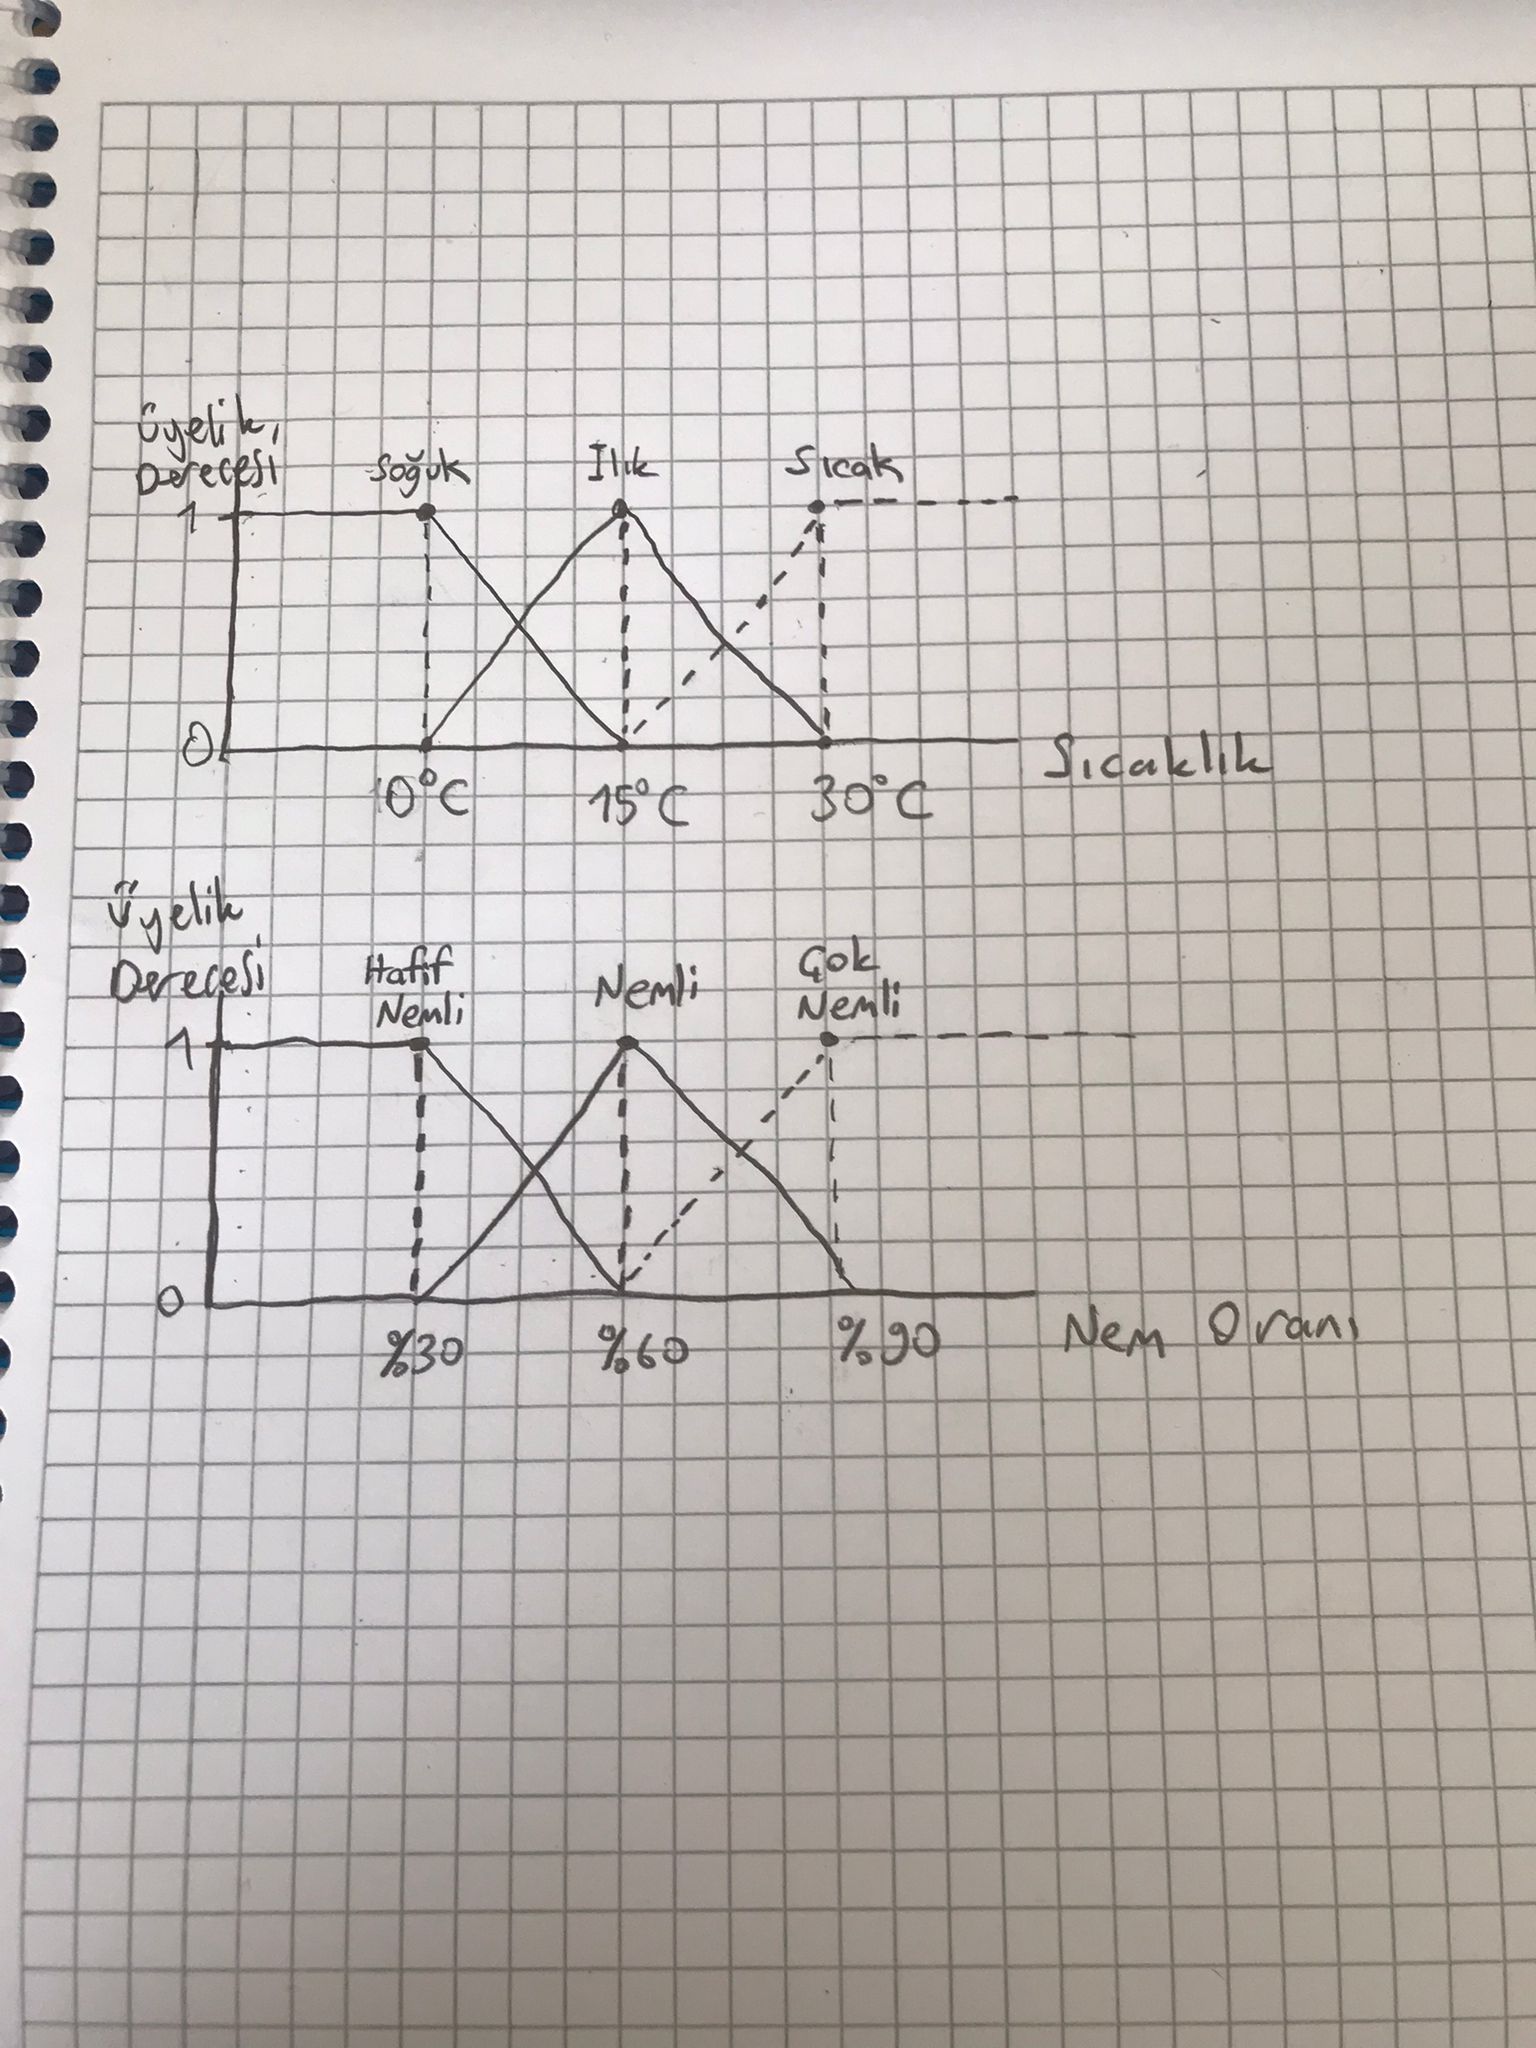 Üyelik
Derecesi
Soğuk
Ilık
Sıcak
1
0
10°C
15°C
30°C
Sıcaklık
Üyelik
Derecesi
Hafif
Nemli
Nemli
Çok
Nemli
1
0
%30
%60
%90
Nem Oranı